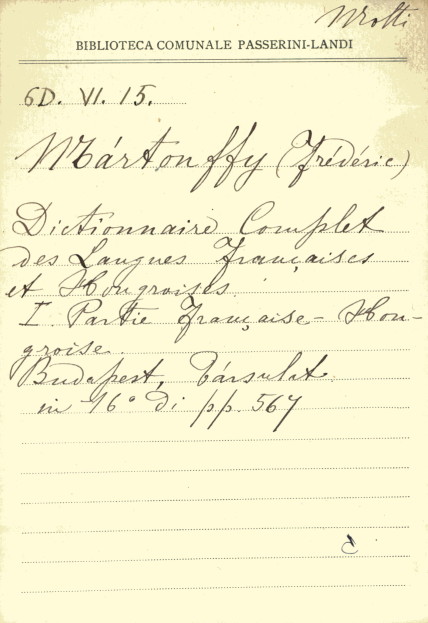 BIBLIOTECA COMUNALE PASSERINI-LANDI
6D. VI. 15.
Mártonffy (Frédéric)
Dictionnaire Complet
des Langues Françaises
et Hongroises.
I. Partie Française - Hon-
groise.
Budapest, Társulat.
in 16° di pp. 567